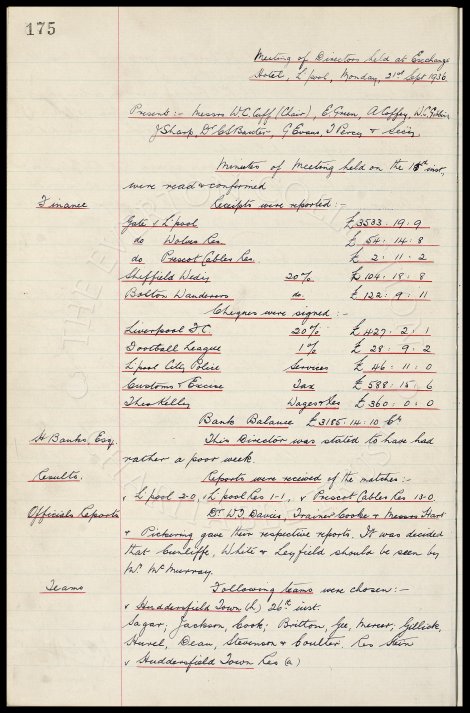 175
Meeting of Directors held at Exchange
Hotel, L'pool, Monday, 21st Sept 1936.
Present :- Messrs W.C. Cuff (Chair), E. Green, A. Coffey, W.C. Gibbins,
J Sharp, Dr C.S. Baxter, G Evans, T Percy & Secy.
Minutes of Meeting held on the 15th inst,
were read & confirmed
Finance Receipts were reported :-
Gate v L'pool £3533 : 19 : 9
do Wolves Res. £ 54 : 14 : 8
do Prescot Cables Res. £ 2 : 11 : 2
Sheffield Wedy 20% £104 : 18 : 8
Bolton Wanderers do. £ 122 : 9 : 11
Cheques were signed :-
Liverpool F.C 20% £1427 : 2 : 1
Football League 1% £ 28 : 9 : 2
L'pool City Police Services £ 46 : 11 : 0
Customs & Excise Tax £ 588 : 15 : 6
Theo Kelly Wages & Res £ 360 : 0 : 0
Bank Balance £3185 : 14 : 10 Cr
H Banks Esq. This Director was stated to have had
rather a poor week.
Results. Reports were received of the matches :-
v L'pool 2-0, v L'pool Res 1-1, v Prescot Cables Res 13-0.
Officials Reports Dr W.J Davies, Trainer Cooke & Messrs Hart
& Pickering gave their respective reports. It was decided
that Cunliffe, White & Leyfield should be seen by
Mr McMurray.
Teams Following teams were chosen :-
v Huddersfield Town (h) 26th inst.
Sagar; Jackson, Cook; Britton, Gee, Mercer; Gillick,
Hurel, Dean, Stevenson & Coulter. Res
v Huddersfield Town Res (a)